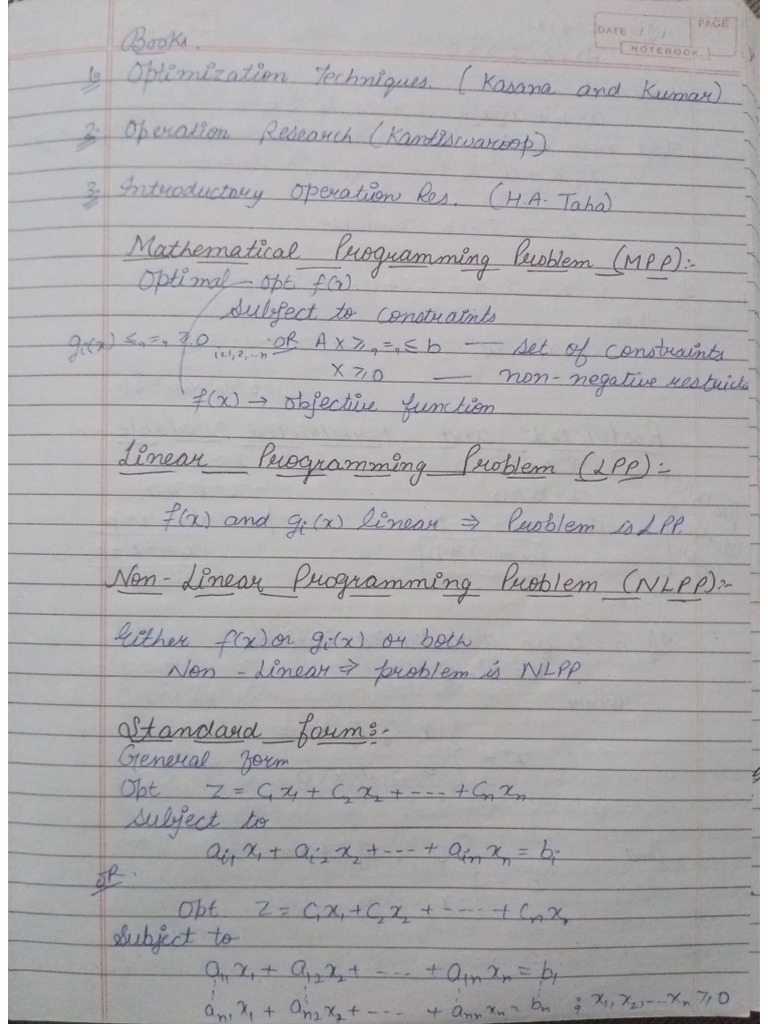 DATE / /
PAGE
NOTEBOOK.
Books.
1. Optimization Techniques. (Kasana and Kumar)
2. Operation Research (Kantiswaroop)
3. Introductory Operation Res. (H.A. Taha)
Mathematical Programming Problem (MPP):-
Optimal - opt f(x)
Subject to constraints
gᵢ(x) ≤,=,≥0 i=1,2,...n OR Ax ≥,=,≤ b — set of constraints
x ≥ 0 — non-negative restricts
f(x) → objective function
Linear Programming Problem (LPP):-
f(x) and gᵢ(x) linear ⇒ Problem is LPP.
Non-Linear Programming Problem (NLPP):-
Either f(x) or gᵢ(x) or both
Non-Linear ⇒ problem is NLPP
Standard form:-
General form
Opt Z = C₁x₁ + C₂x₂ + ---- + Cₙxₙ
Subject to
aᵢ₁x₁ + aᵢ₂x₂ + ---- + aᵢₙxₙ = bᵢ
OR.
Opt. Z = C₁x₁ + C₂x₂ + ---- + Cₙxₙ
Subject to
a₁₁x₁ + a₁₂x₂ + ---- + a₁ₙxₙ = b₁
aₙ₁x₁ + aₙ₂x₂ + ---- + aₙₙxₙ = bₙ ; x₁, x₂, --- xₙ ≥ 0